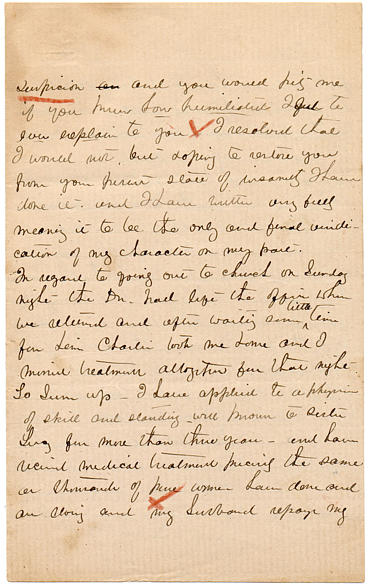 suspicion and you would pity me
if you knew how humiliated I feel to
even explain to you I resolved that
I would not, but hoping to restore you
from your present state of insanity I have
done it - and I have written very fully
meaning it to be the only and final vindi-
cation of my character on my part.
In regard to going out to church on Sunday
night - the Dr. had left the office when
we returned and after waiting some little time
for him Charlie took me home and I
missed treatment altogether for that night.
To Sum up - I have applied to a physician
of skill and standing well known to
for more than three years - and have
received medical treatment precisely the same
as thousands of pure women have done and
are doing and my husband repays my